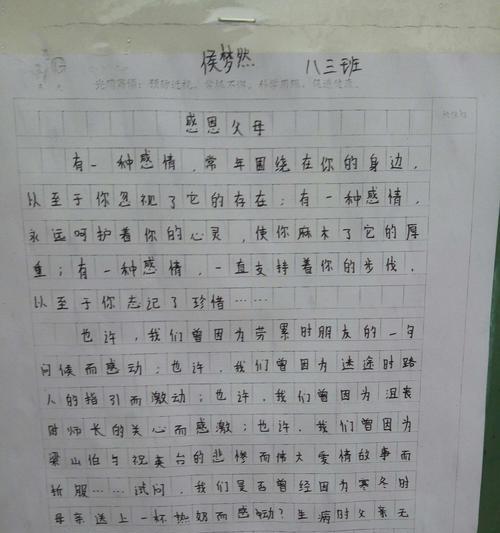 侯梦然 八三班
光明寄语：预防近视，常抓不懈，科学用眼，保进健康。
感恩父母
有一种感情，常年围绕在你的身边，
以至于你忽视了它的存在；有一种感情，
永远呵护着你的心灵，使你麻木了它的厚
重；有一种感情，一直支持着你的步伐，
以至于你忘记了珍惜……
也许，我们曾因为劳累时朋友的一句
问候而感动；也许，我们曾因为迷途时路
人的指引而激动；也许，我们曾因为沮丧
时师长的关心而感激；也许，我们曾因为
梁山伯与祝英台的悲惨而伟大爱情故事而
折服……试问，我们是否曾经因为寒冬时
母亲送上一杯热奶而感动？生病时父亲无